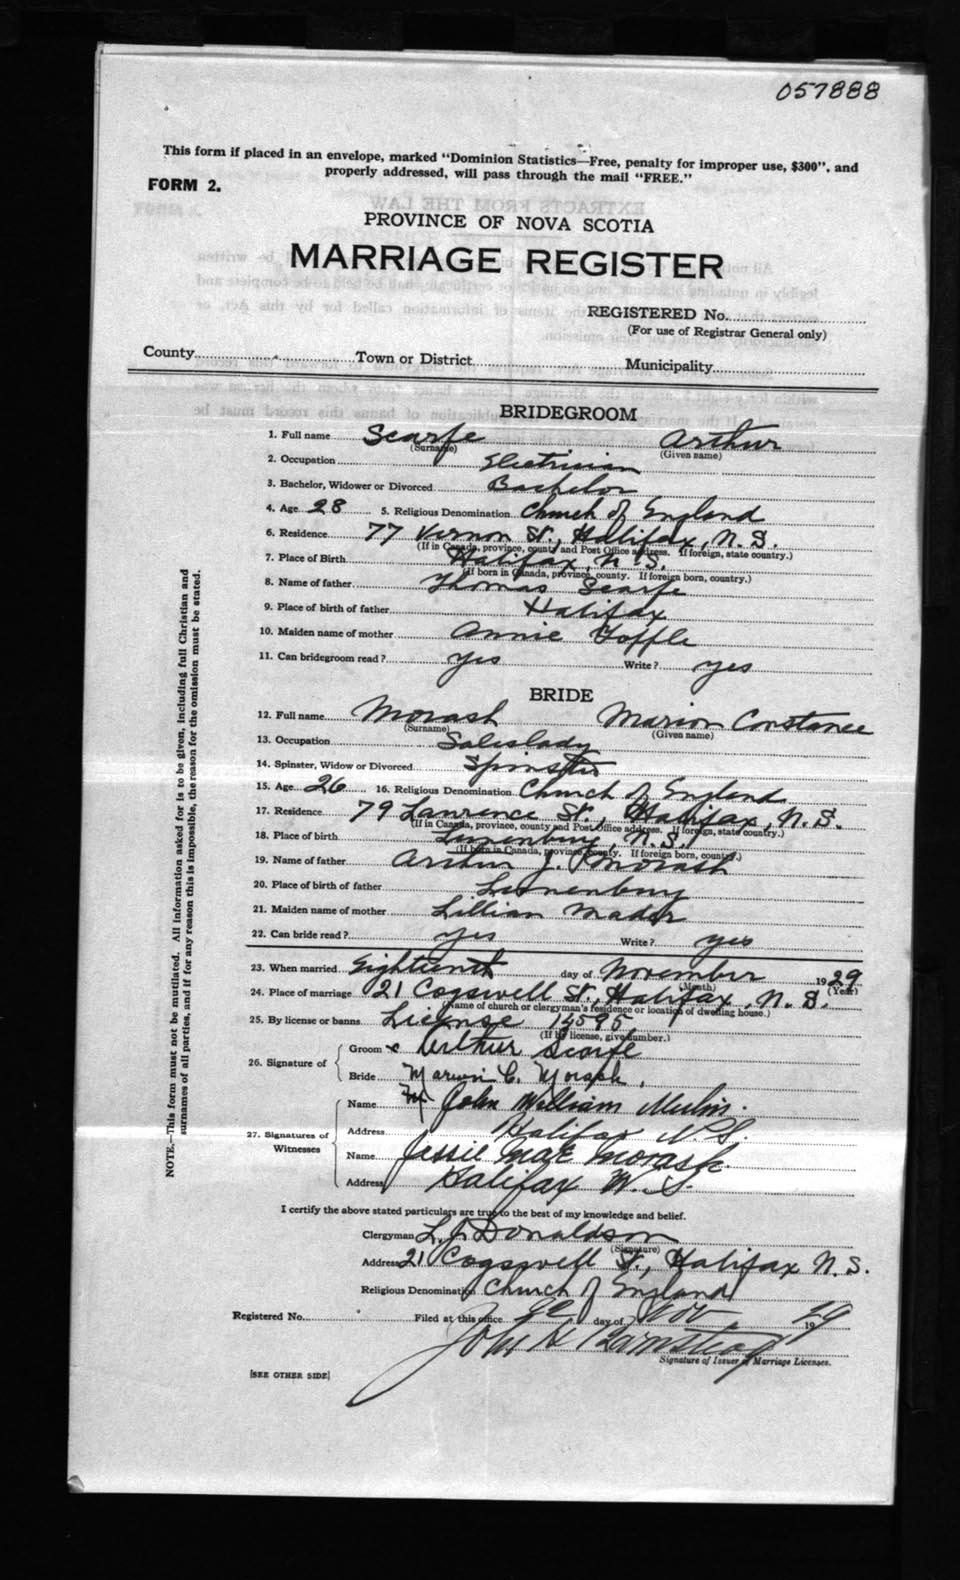 057888
This form if placed in an envelope, marked "Dominion Statistics—Free, penalty for improper use, $300", and
properly addressed, will pass through the mail "FREE."
FORM 2.
PROVINCE OF NOVA SCOTIA
MARRIAGE REGISTER
REGISTERED No.
(For use of Registrar General only)
County Town or District Municipality
BRIDEGROOM
1. Full name Scarfe Arthur
(Surname) (Given name)
2. Occupation Electrician
3. Bachelor, Widower or Divorced Bachelor
4. Age 28 5. Religious Denomination Church of England
6. Residence 77 Vernon St., Halifax, N.S.
(If in Canada, province, county and Post Office address. If foreign, state country.)
7. Place of Birth Halifax, N.S.
(If born in Canada, province, county. If foreign born, country.)
8. Name of father Thomas Scarfe
9. Place of birth of father Halifax
10. Maiden name of mother Annie
11. Can bridegroom read? yes Write? yes
BRIDE
12. Full name Morash Marion Constance
(Surname) (Given name)
13. Occupation Saleslady
14. Spinster, Widow or Divorced Spinster
15. Age 26 16. Religious Denomination Church of England
17. Residence 79 Lawrence St., Halifax, N.S.
(If in Canada, province, county and Post Office address. If foreign, state country.)
18. Place of birth Lunenburg, N.S.
(If born in Canada, province, county. If foreign born, country.)
19. Name of father Arthur J. Morash
20. Place of birth of father Lunenburg
21. Maiden name of mother Lillian Mader
22. Can bride read? yes Write? yes
23. When married Eighteenth day of November 1929
(Month) (Year)
24. Place of marriage 21 Cogswell St., Halifax, N.S.
(Name of church or clergyman's residence or location of dwelling house.)
25. By license or banns License 14595
(If by license, give number.)
26. Signature of
Groom Arthur Scarfe
Bride Marion C. Morash.
27. Signatures of Witnesses
Name John William
Address Halifax N.S.
Name Jessie Mae Morash
Address Halifax N.S.
I certify the above stated particulars are true to the best of my knowledge and belief.
Clergyman L. J. Donaldson
(Signature)
Address 21 Cogswell St., Halifax N.S.
Religious Denomination Church of England
Registered No. Filed at this office day of Nov 1929
John H
Signature of Issuer of Marriage Licenses.
[SEE OTHER SIDE]
NOTE.—This form must not be mutilated. All information asked for is to be given, including full Christian and
surnames of all parties, and if for any reason this is impossible, the reason for the omission must be stated.